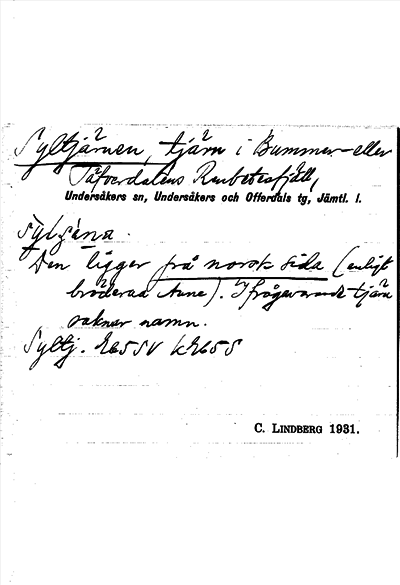 Syltjärnen, tjärn i Bummer- eller
Tåfverdalens Renbetesfjäll,
Undersåkers sn, Undersåkers och Offerdals tg, Jämtl. l.
Den ligger på norsk sida (enligt
bröderna Arne). Ifrågavarande tjärn
saknar namn.
Syltj.
C. LINDBERG 1931.